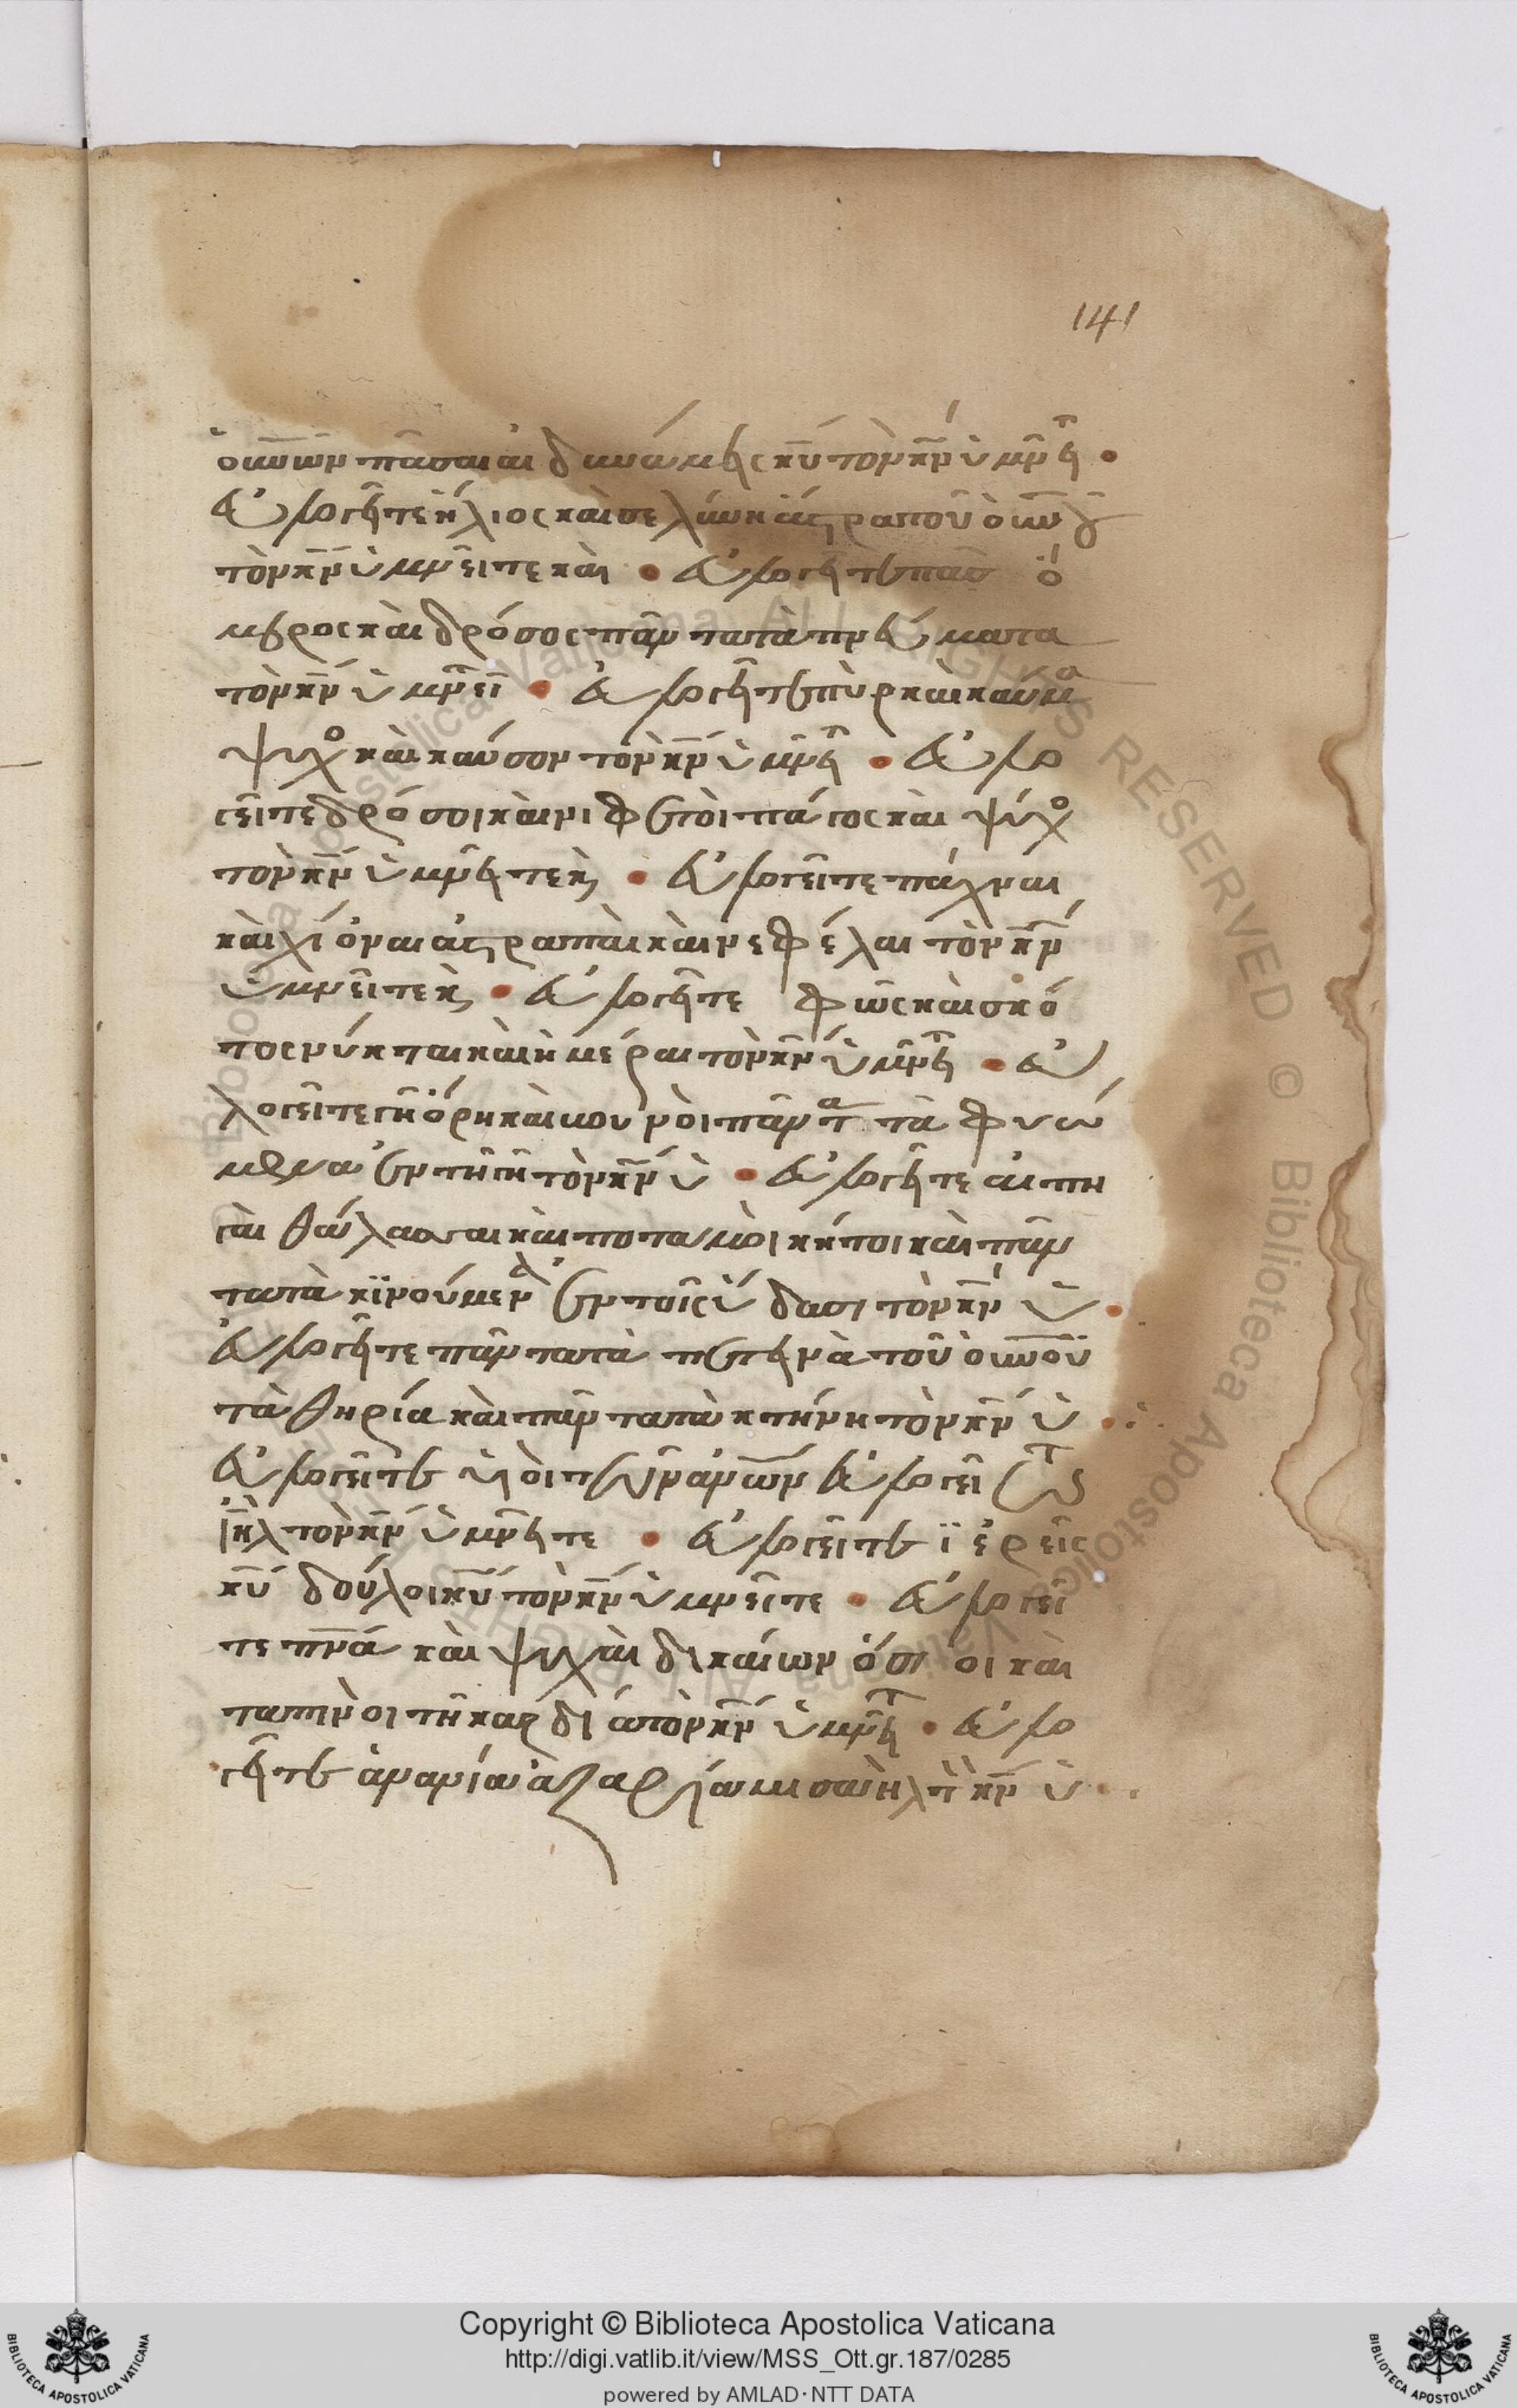 141
οὐνῶν πᾶσαι αἱ δυνάμεις κῡ τὸν κ̅ν̅ ὑμνεῖτ
εὐλογεῖτε ἥλιος καὶ σελήνη ἄστρα τοῦ οὐνοῦ
τὸν κ̅ν̅ ὑμνεῖτε καὶ • εὐλογεῖτε πᾶσ ὄμ
βρος καὶ δρόσος πάντα τὰ πνεύματα
τὸν κ̅ν̅ ὑμνεῖτ • εὐλογεῖτε πῦρ καὶ καῦμα
ψύχο καὶ καύσον τὸν κ̅ν̅ ὑμνεῖτ • εὐλο
γεῖτε δρόσοι καὶ νιφετοὶ πάγος καὶ ψύχο
τὸν κ̅ν̅ ὑμνεῖτε κ • εὐλογεῖτε πάχναι
καὶ χιόναι ἀστραπαὶ καὶ νεφέλαι τὸν κ̅ν̅
ὑμνεῖτε κ • εὐλογεῖτε φῶς καὶ σκό
τος νύκται καὶ ἡμέραι τὸν κ̅ν̅ ὑμνεῖτ • εὐ
λογεῖτε γῆ ὄρη καὶ βουνοὶ πάντα τὰ φυό
μενα ἐν τῇ γῇ τὸν κ̅ν̅ ὑ • εὐλογεῖτε αἱ πη
γαὶ θάλασσαι καὶ ποταμοὶ κήτοι καὶ πάν
τα τὰ κϊνούμενα ἐν τοῖς ὕδασι τὸν κ̅ν̅ ὑ •
εὐλογεῖτε πάντα τὰ πετεινὰ τοῦ οὐνοῦ
τὰ θηρία καὶ πάντα τὰ κτήνη τὸν κ̅ν̅ ὑ •
εὐλογεῖτε υἱοὶ τῶν ἀνῶν εὐλογεῖτω
ι̅η̅λ̅ τὸν κ̅ν̅ ὑμνεῖτε • εὐλογεῖτε ϊερεῖς
κ̅υ̅ δούλοι κ̅υ̅ τὸν κ̅ν̅ ὑμνεῖτε • εὐλογεῖ
τε π̅ν̅α̅ καὶ ψυχαὶ δικαίων ὅσιοι καὶ
ταπινοὶ τῇ καρδία τὸν κ̅ν̅ ὑμνεῖτ • εὐλο
γεῖτε ἀνανία ἀζαρία μισαὴλ τὸν κ̅ν̅ ὑ •
Copyright © Biblioteca Apostolica Vaticana
http://digi.vatlib.it/view/MSS_Ott.gr.187/0285
powered by AMLAD·NTT DATA